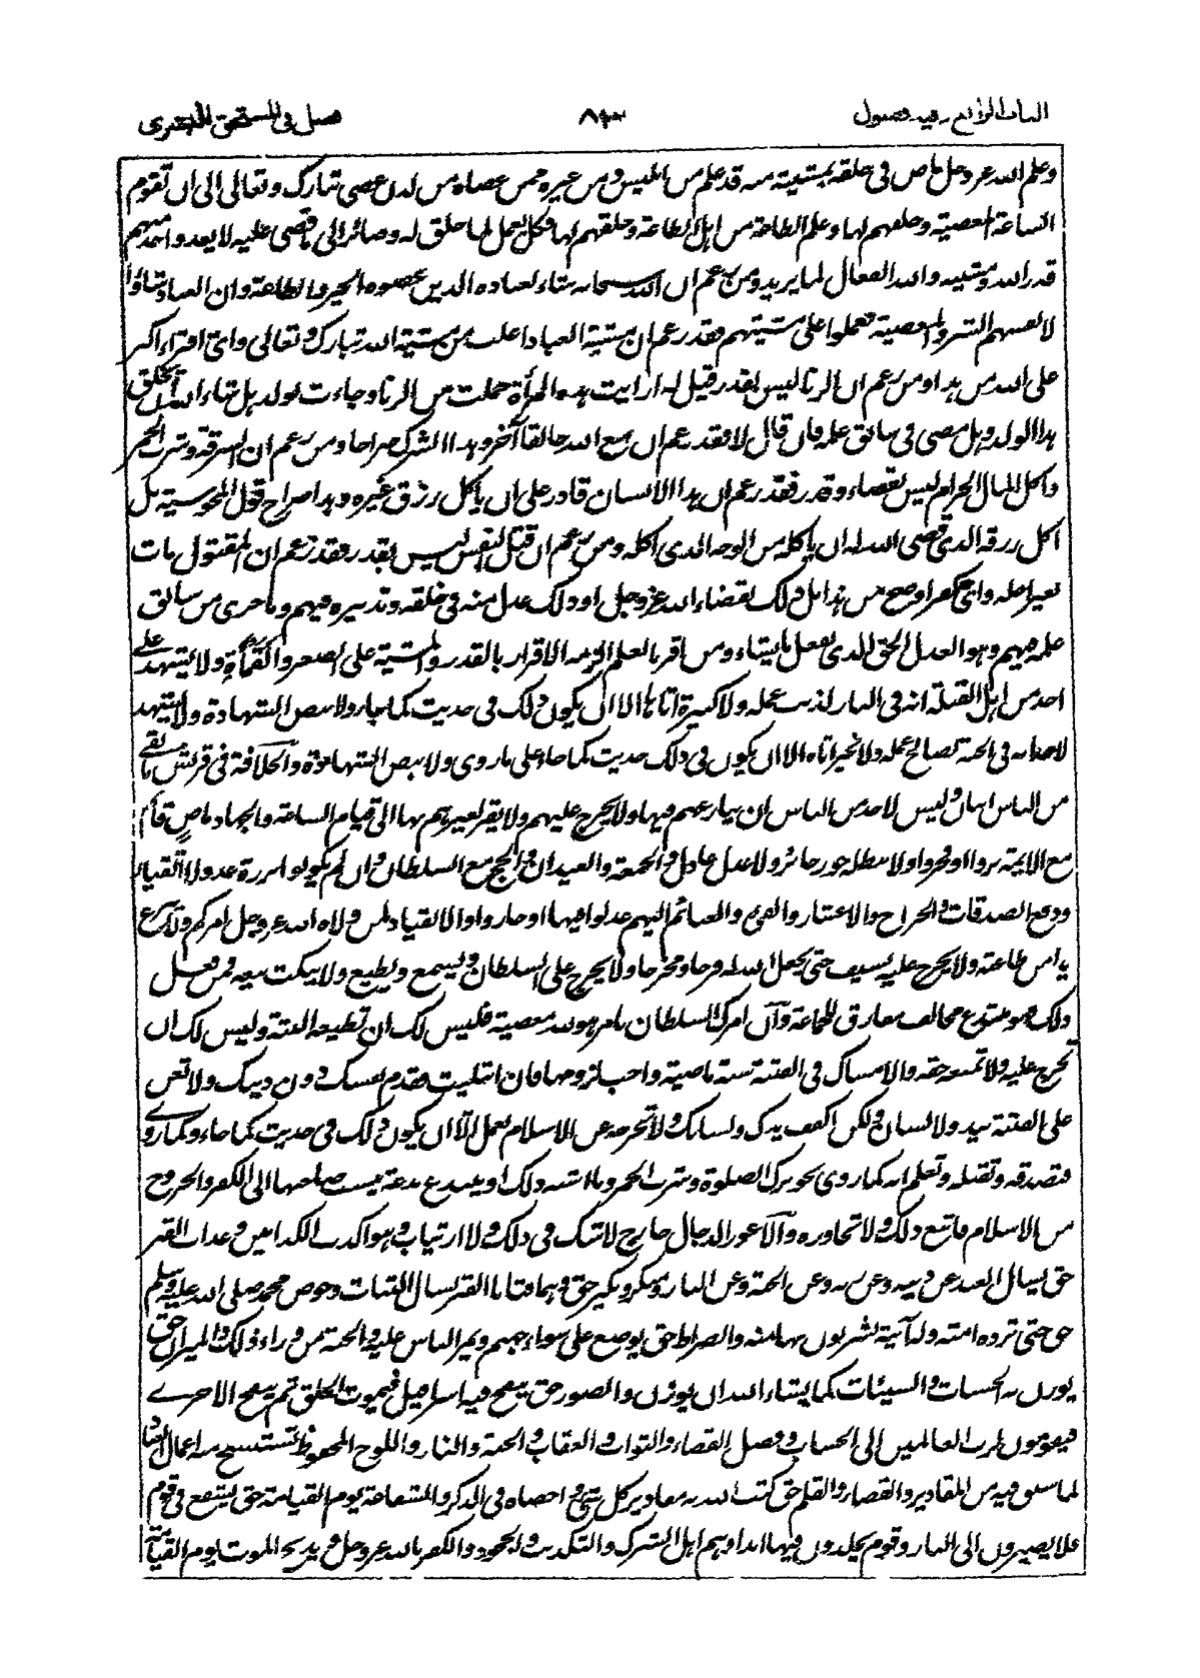 الباب الرابع وفيه فصول ٨٣ فصل في المستحق للفتوى
وعلم الله عز وجل ماض في خلقه بمشيئة منه قد علم من ابليس ومن غيره ممن عصاه من لدن عصى تبارك وتعالى الى ان تقوم
الساعة المعصية وخلقهم لها وعلم الطاعة من اهل الطاعة وخلقهم لها فكل يعمل لما خلق له وصائر الى ما قضى عليه لا يعدو احد منهم
قدر الله ومشيته والله الفعال لما يريد ومن زعم ان الله سبحانه شاء لعباده الذين عصوه الخير والطاعة وان العباد شاؤا
لانفسهم الشر والمعصية فعملوا على مشيتهم فقد زعم ان مشية العباد اغلب من مشية الله تبارك وتعالى واي افتراء اكبر
على الله من هذا ومن زعم ان الزنا ليس بقدر قيل له ارايت هذه المرأة حملت من الزنا وجاءت بولد هل شاء الله ان يخلق
هذا الولد وهل مضى في سابق علمه فان قال لا فقد زعم ان مع الله خالقا آخر وهذا الشرك صراحا ومن زعم ان السرقة وشرب الخمر
واكل المال الحرام ليس بقضاء وقدر فقد زعم ان هذا الانسان قادر على ان ياكل رزق غيره وهذا صراح قول المجوسية بل
اكل رزقه الذي قضى الله له ان ياكله من الوجه الذي اكله ومن زعم ان قتل النفس ليس بقدر فقد زعم ان المقتول مات
بغير اجله واي كفر اوضح من هذا بل ذلك بقضاء الله عز وجل وذلك عدل منه في خلقه وتدبيره فيهم وما جرى من سابق
علمه فيهم وهو العدل الحق الذي يفعل ما يشاء ومن اقر بالعلم لزمه الاقرار بالقدر والمشية على الصغر والقمأة ولا يشهد على
احد من اهل القبلة انه في النار لذنب عمله ولا كبيرة اتاها الا ان يكون ذلك في حديث كما جاء ولا بنص الشهادة ولا يشهد
لاحد انه في الجنة لصالح عمله ولا لخير اتاه الا ان يكون في ذلك حديث كما جاء على ما روي ولا بنص الشهادة والخلافة في قريش ما بقي
من الناس اثنان وليس لاحد من الناس ان ينازعهم فيها ولا يخرج عليهم ولا يقر لغيرهم بها الى قيام الساعة والجهاد ماض قائم
مع الائمة بروا او فجروا ولا يبطله جور جائر ولا عدل عادل والجمعة والعيدان والحج مع السلطان وان لم يكونوا بررة عدولا اتقياء
ودفع الصدقات والخراج والاعشار والفيء والغنائم اليهم عدلوا فيها او جاروا والانقياد لمن ولاه الله عز وجل امركم ولا تنزع
يدا من طاعته ولا يخرج عليه بسيف حتى يجعل الله له فرجا ومخرجا ولا يخرج على السلطان ويسمع ويطيع ولا ينكث بيعة فمن فعل
ذلك فهو مبتدع مخالف مفارق للجماعة وان امرك السلطان بامر هو لله معصية فليس لك ان تطيعه البتة وليس لك ان
تخرج عليه ولا تمنعه حقه والامساك في الفتنة سنة ماضية واجب لزومها فان ابتليت فقدم نفسك دون دينك ولا تعن
على الفتنة بيد ولا لسان ولكن اكفف يدك ولسانك ولا تخرجه عن الاسلام بعمل الا ان يكون ذلك في حديث كما جاء وكما روي
فتصدقه وتقبله وتعلم انه كما روي نحو ترك الصلوة وشرب الخمر وما اشبه ذلك او يبتدع بدعة ينسب صاحبها الى الكفر والخروج
من الاسلام فاتبع ذلك ولا تجاوزه والاعور الدجال خارج لا شك في ذلك ولا ارتياب وهو اكذب الكذابين وعذاب القبر
حق يسال العبد عن دينه وعن ربه وعن الجنة وعن النار ومنكر ونكير حق وهما فتانا القبر نسال الله الثبات وحوض محمد صلى الله عليه وسلم
حق حتى ترده امته وله آنية يشربون بها منه والصراط حق يوضع على سواء جهنم ويمر الناس عليه والجنة من وراء ذلك والميزان حق
يوزن به الحسنات والسيئات كما يشاء الله ان يوزن والصور حق ينفخ فيه اسرافيل فيموت الخلق ثم ينفخ الاخرى
فيقومون لرب العالمين الى الحساب وفصل القضاء والثواب والعقاب والجنة والنار واللوح المحفوظ تستنسخ منه اعمال العباد
لما سبق فيه من المقادير والقضاء والقلم حق كتب الله به مقادير كل شيء واحصاه في الذكر والشفاعة يوم القيامة حق يشفع في قوم
فلا يصيرون الى النار وقوم يخلدون فيها ابدا وهم اهل الشرك والتكذيب والجحود والكفر بالله عز وجل ويذبح الموت يوم القيامة